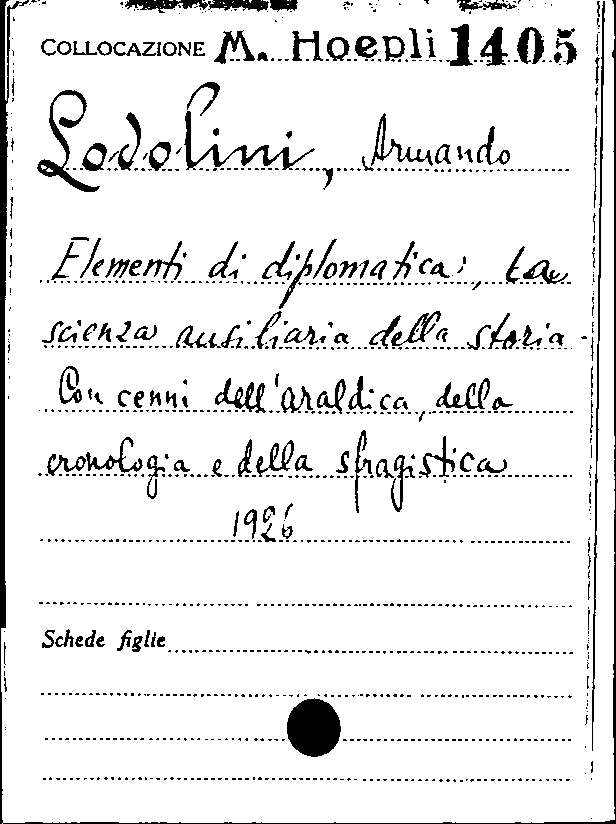 COLLOCAZIONE M. Hoepli 1405
Lodolini, Armando
Elementi di diplomatica:, La
scienza ausiliaria della storia.
Con cenni dell'araldica, della
cronologia e della sfragistica
1926
Schede figlie